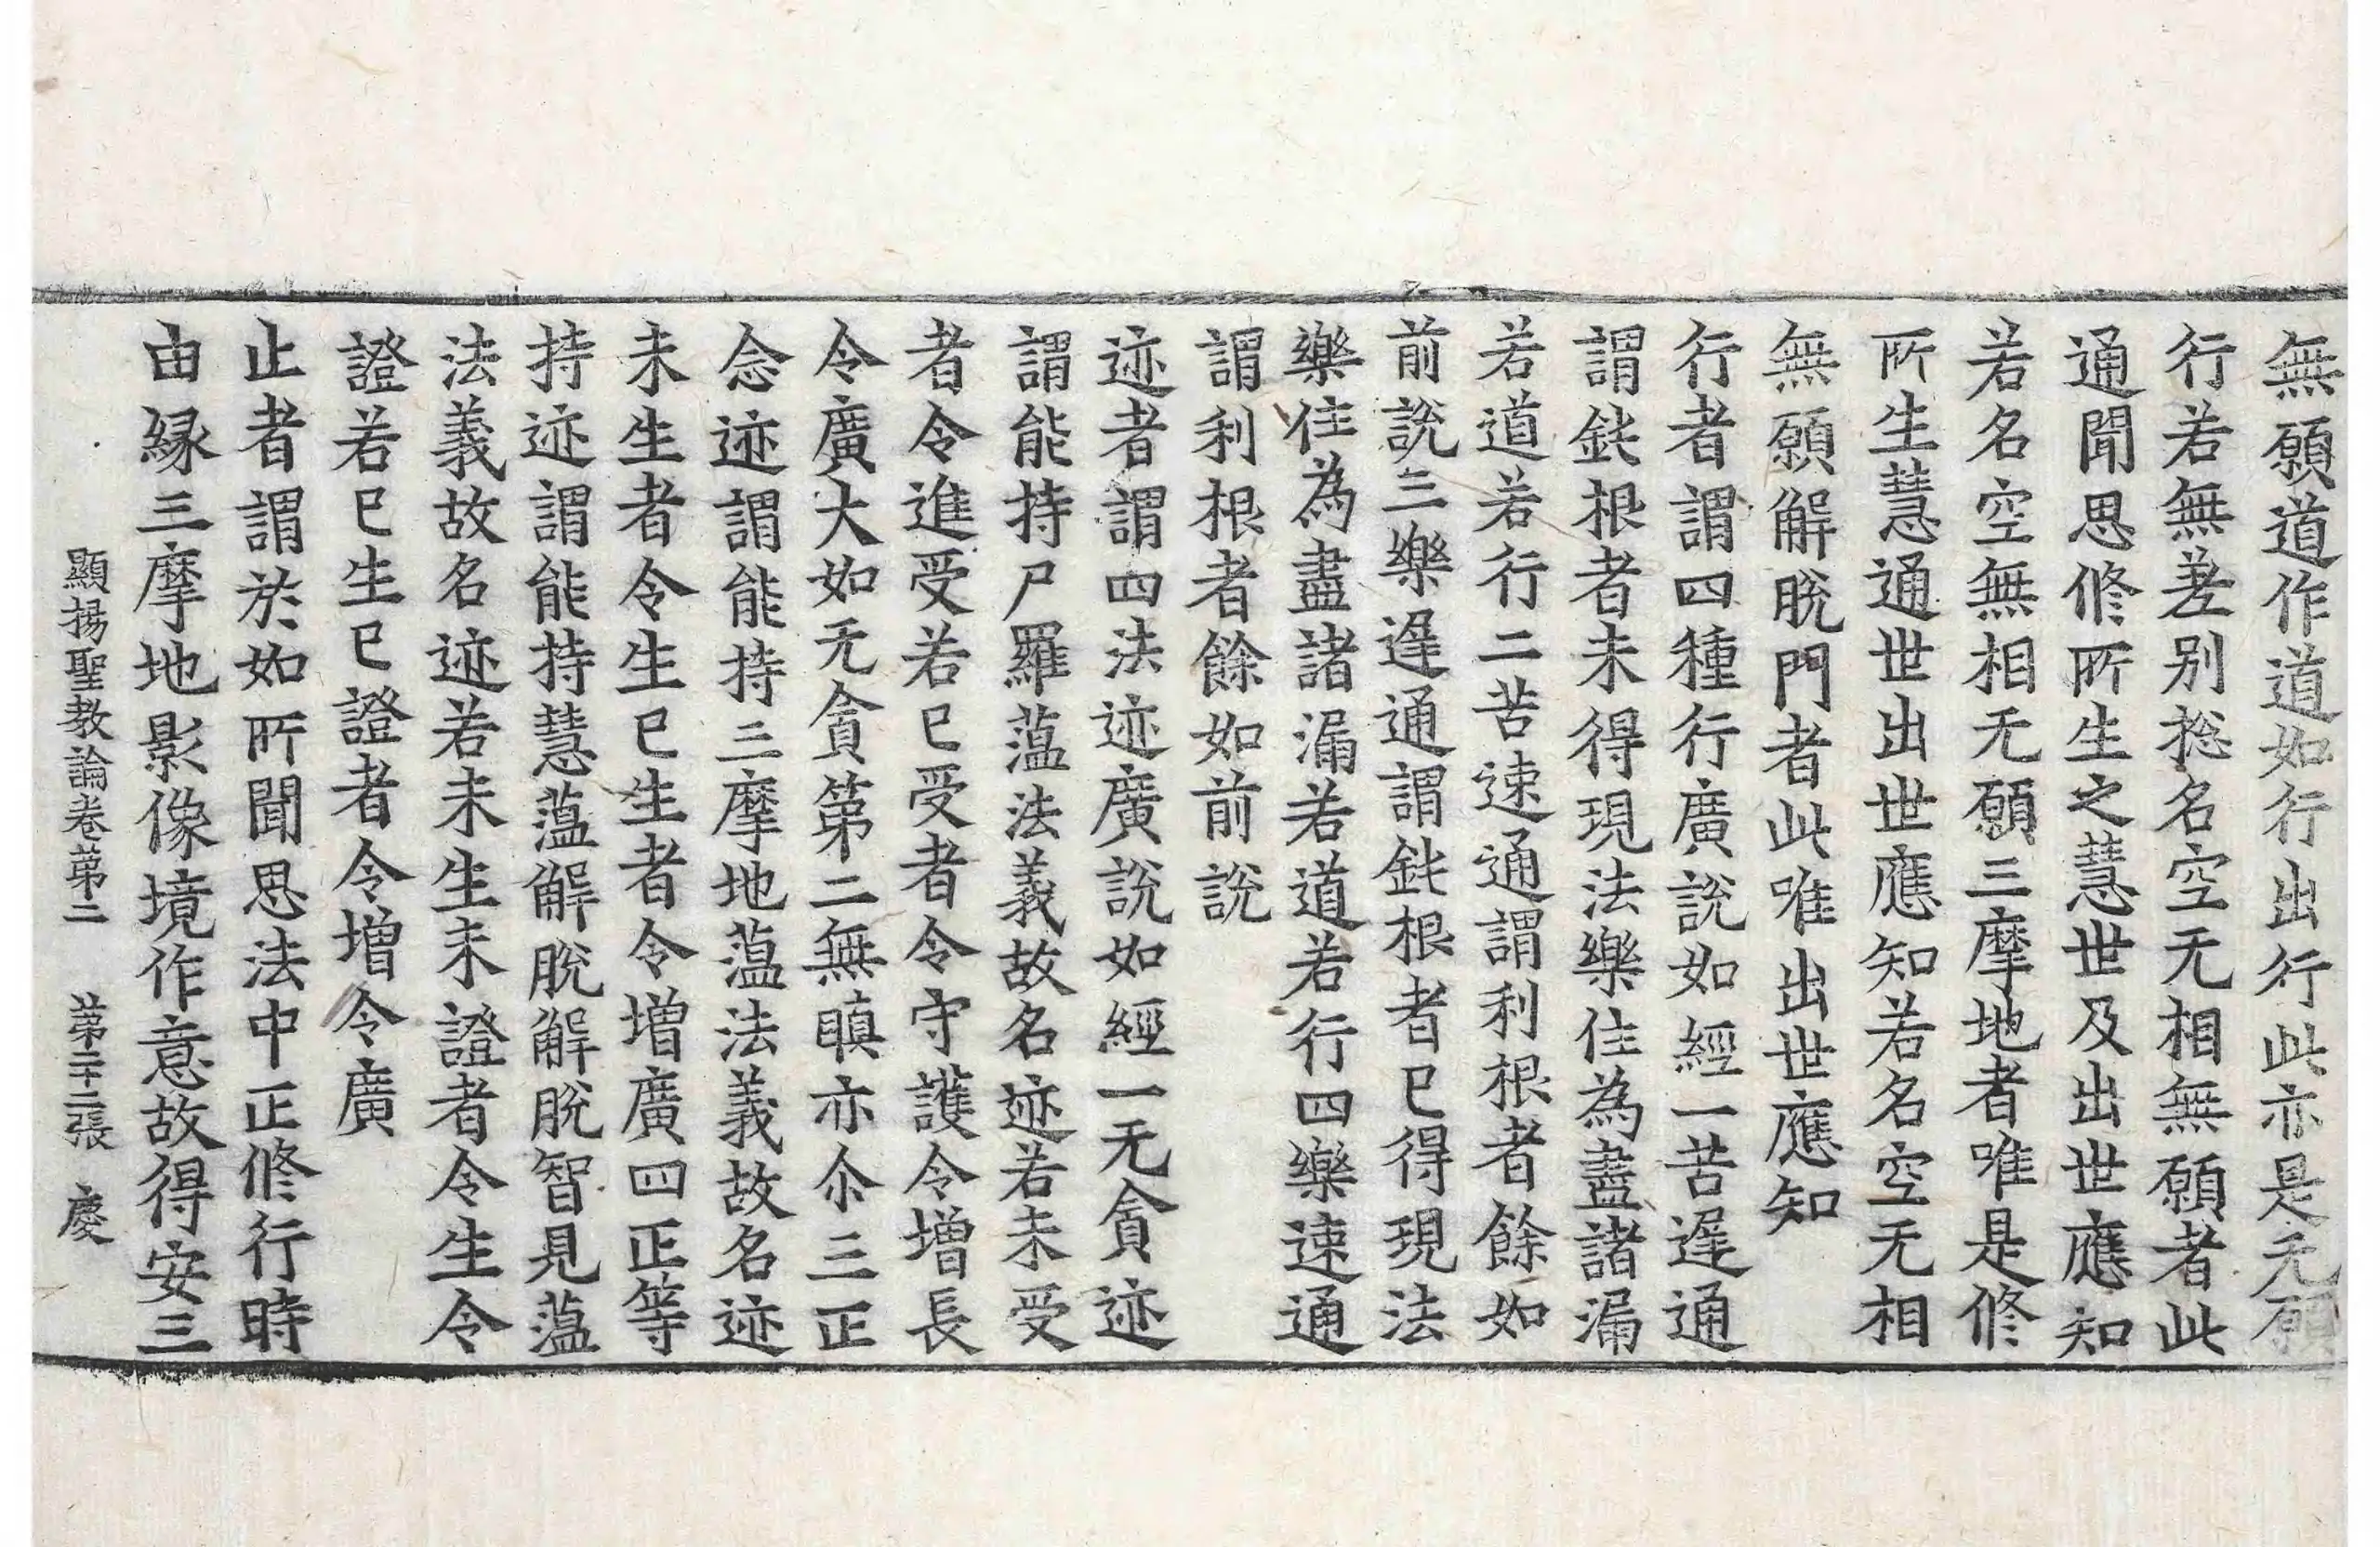 無願道作道如行出行此亦是无願
行若無差别捴名空无相無願者此
通聞思修所生之慧世及出世應知
若名空無相无願三摩地者唯是修
所生慧通世出世應知若名空无相
無願解脫門者此唯出世應知
行者謂四種行廣說如經一苦遲通
謂鈍根者未得現法樂住為盡諸漏
若道若行二苦速通謂利根者餘如
前說三樂遲通謂鈍根者已得現法
樂住為盡諸漏若道若行四樂速通
謂利根者餘如前說
迹者謂四法迹廣說如經一无貪迹
謂能持尸羅蕰法義故名迹若未受
者令進受若已受者令守護令增長
令廣大如无貪第二無瞋亦尒三正
念迹謂能持三摩地蕰法義故名迹
未生者令生已生者令增廣四正等
持迹謂能持慧蕰解脫解脫智見蕰
法義故名迹若未生未證者令生令
證若已生已證者令增令廣
止者謂於如所聞思法中正修行時
由緣三摩地影像境作意故得安三
顯揚聖教論卷第二 第二十二張 慶